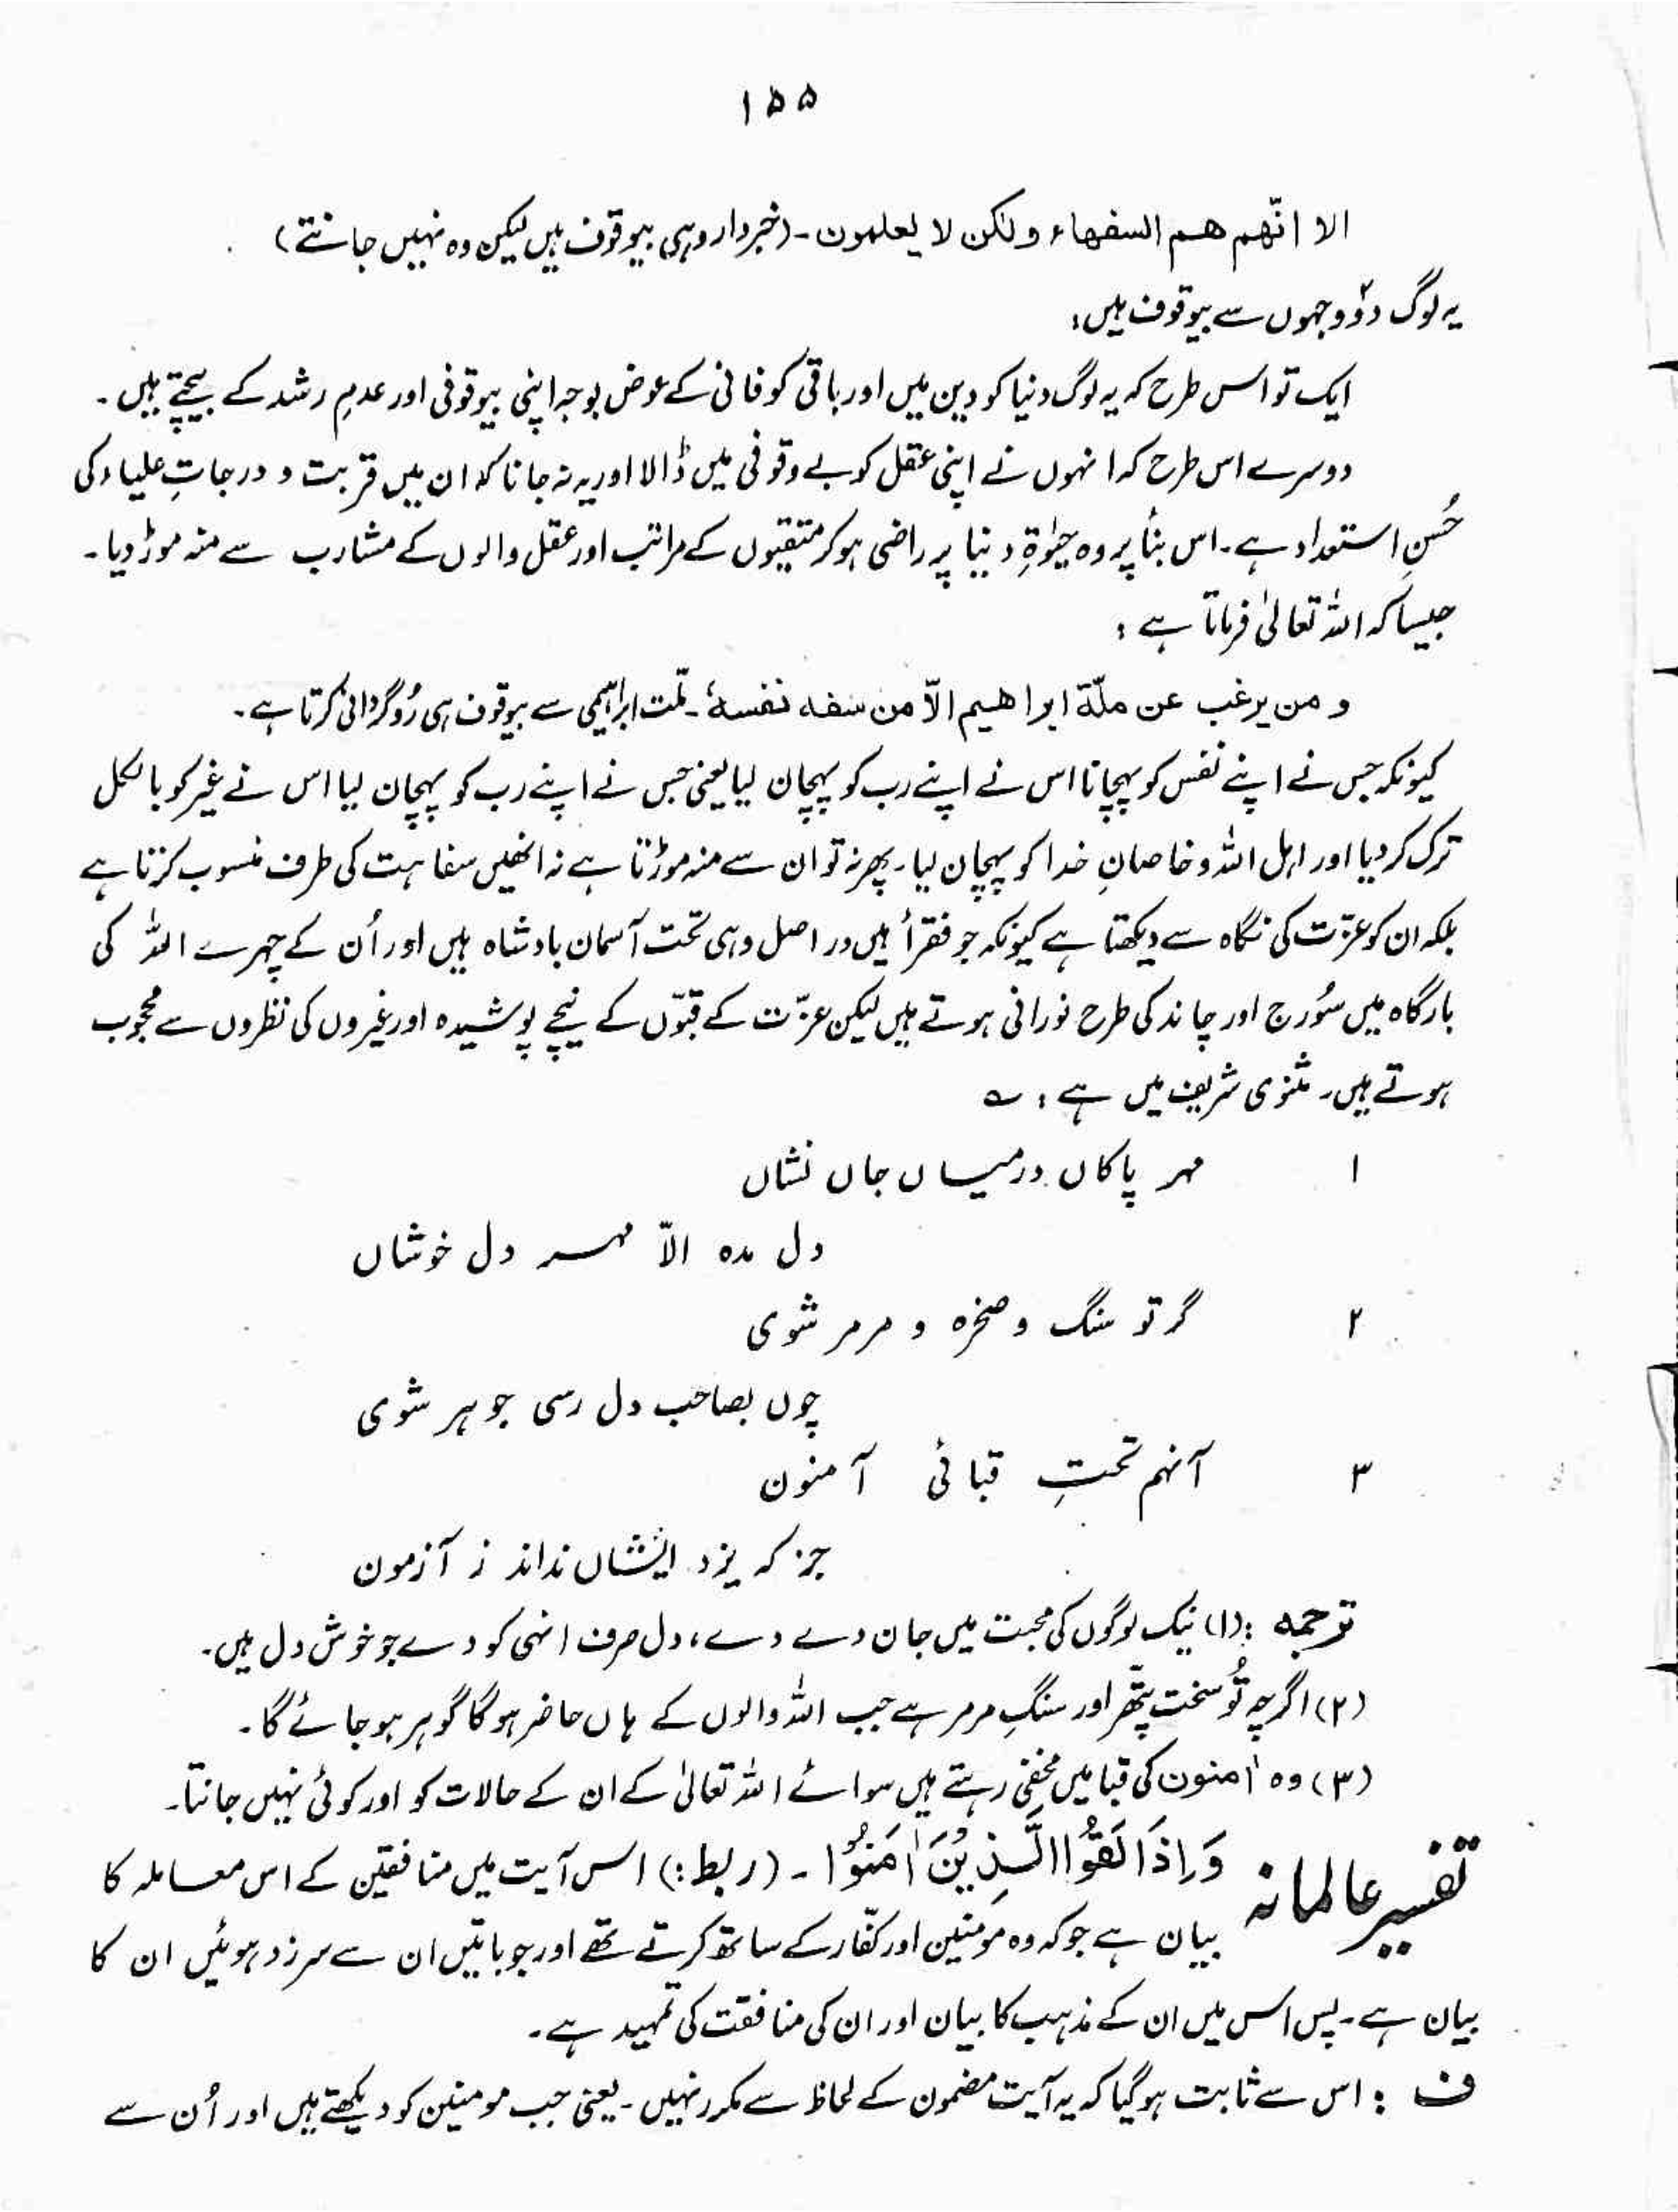 ۱۵۵
الا انّھم ھم السفھاء ولٰکن لا یعلمون۔ (خبردار وہی بیوقوف ہیں لیکن وہ نہیں جانتے)
یہ لوگ دو۲ وجہوں سے بیوقوف ہیں:
ایک تو اس طرح کہ یہ لوگ دنیا کو دین میں اور باقی کو فانی کے عوض بوجہ اپنی بیوقوفی اور عدمِ رشد کے بیچتے ہیں۔
دوسرے اس طرح کہ انہوں نے اپنی عقل کو بے وقوفی میں ڈالا اور یہ نہ جانا کہ ان میں قربت و درجاتِ علیاء کی
حُسنِ استعداد ہے۔ اس بنأ پر وہ حیٰوۃِ دنیا پر راضی ہو کر متقیوں کے مراتب اور عقل والوں کے مشارب سے منہ موڑ دیا۔
جیسا کہ اللہ تعالیٰ فرماتا ہے:
و من یرغب عن ملّۃ ابراھیم الّا من سفہ نفسہٗ۔ ملّت ابراہیمی سے بیوقوف ہی رُوگردانی کرتا ہے۔
کیونکہ جس نے اپنے نفس کو پہچانا اس نے اپنے رب کو پہچان لیا یعنی جس نے اپنے رب کو پہچان لیا اس نے غیر کو بالکل
ترک کر دیا اور اہل اللہ و خاصانِ خدا کو پہچان لیا۔ پھر نہ تو ان سے منہ موڑتا ہے نہ انھیں سفاہت کی طرف منسوب کرتا ہے
بلکہ ان کو عزّت کی نگاہ سے دیکھتا ہے کیونکہ جو فقرأ ہیں در اصل وہی تحت آسمان بادشاہ ہیں اور اُن کے چہرے اللہ کی
بارگاہ میں سُورج اور چاند کی طرح نورانی ہوتے ہیں لیکن عزّت کے قبّوں کے نیچے پوشیدہ اور غیروں کی نظروں سے محجوب
ہوتے ہیں۔ مثنوی شریف میں ہے: ؎
۱ مہر پاکاں درمیاں جاں نشاں
دل مدہ الّا مہر دل خوشاں
۲ گر تو سنگ و صخرہ و مرمر شوی
چوں بصاحب دل رسی جوہر شوی
۳ آنہم تحتِ قبائی آمنون
جز کہ یزد ایشاں نداند ز آزمون
ترجمہ: (۱) نیک لوگوں کی محبت میں جان دے دے، دل صرف انہی کو دے جو خوش دل ہیں۔
(۲) اگرچہ تُو سخت پتّھر اور سنگِ مرمر ہے جب اللہ والوں کے ہاں حاضر ہوگا گوہر ہو جائے گا۔
(۳) وہ اٰمنون کی قبا میں مخفی رہتے ہیں سوائے اللہ تعالیٰ کے ان کے حالات کو اور کوئی نہیں جانتا۔
تفسیر عالمانہ وَاِذَا لَقُوا الَّذِیْنَ اٰمَنُوْا۔ (ربط:) اس آیت میں منافقین کے اس معاملہ کا
بیان ہے جو کہ وہ مومنین اور کفّار کے ساتھ کرتے تھے اور جو باتیں ان سے سرزد ہوئیں ان کا
بیان ہے۔ پس اس میں ان کے مذہب کا بیان اور ان کی منافقت کی تمہید ہے۔
ف: اس سے ثابت ہو گیا کہ یہ آیت مضمون کے لحاظ سے مکرر نہیں۔ یعنی جب مومنین کو دیکھتے ہیں اور اُن سے